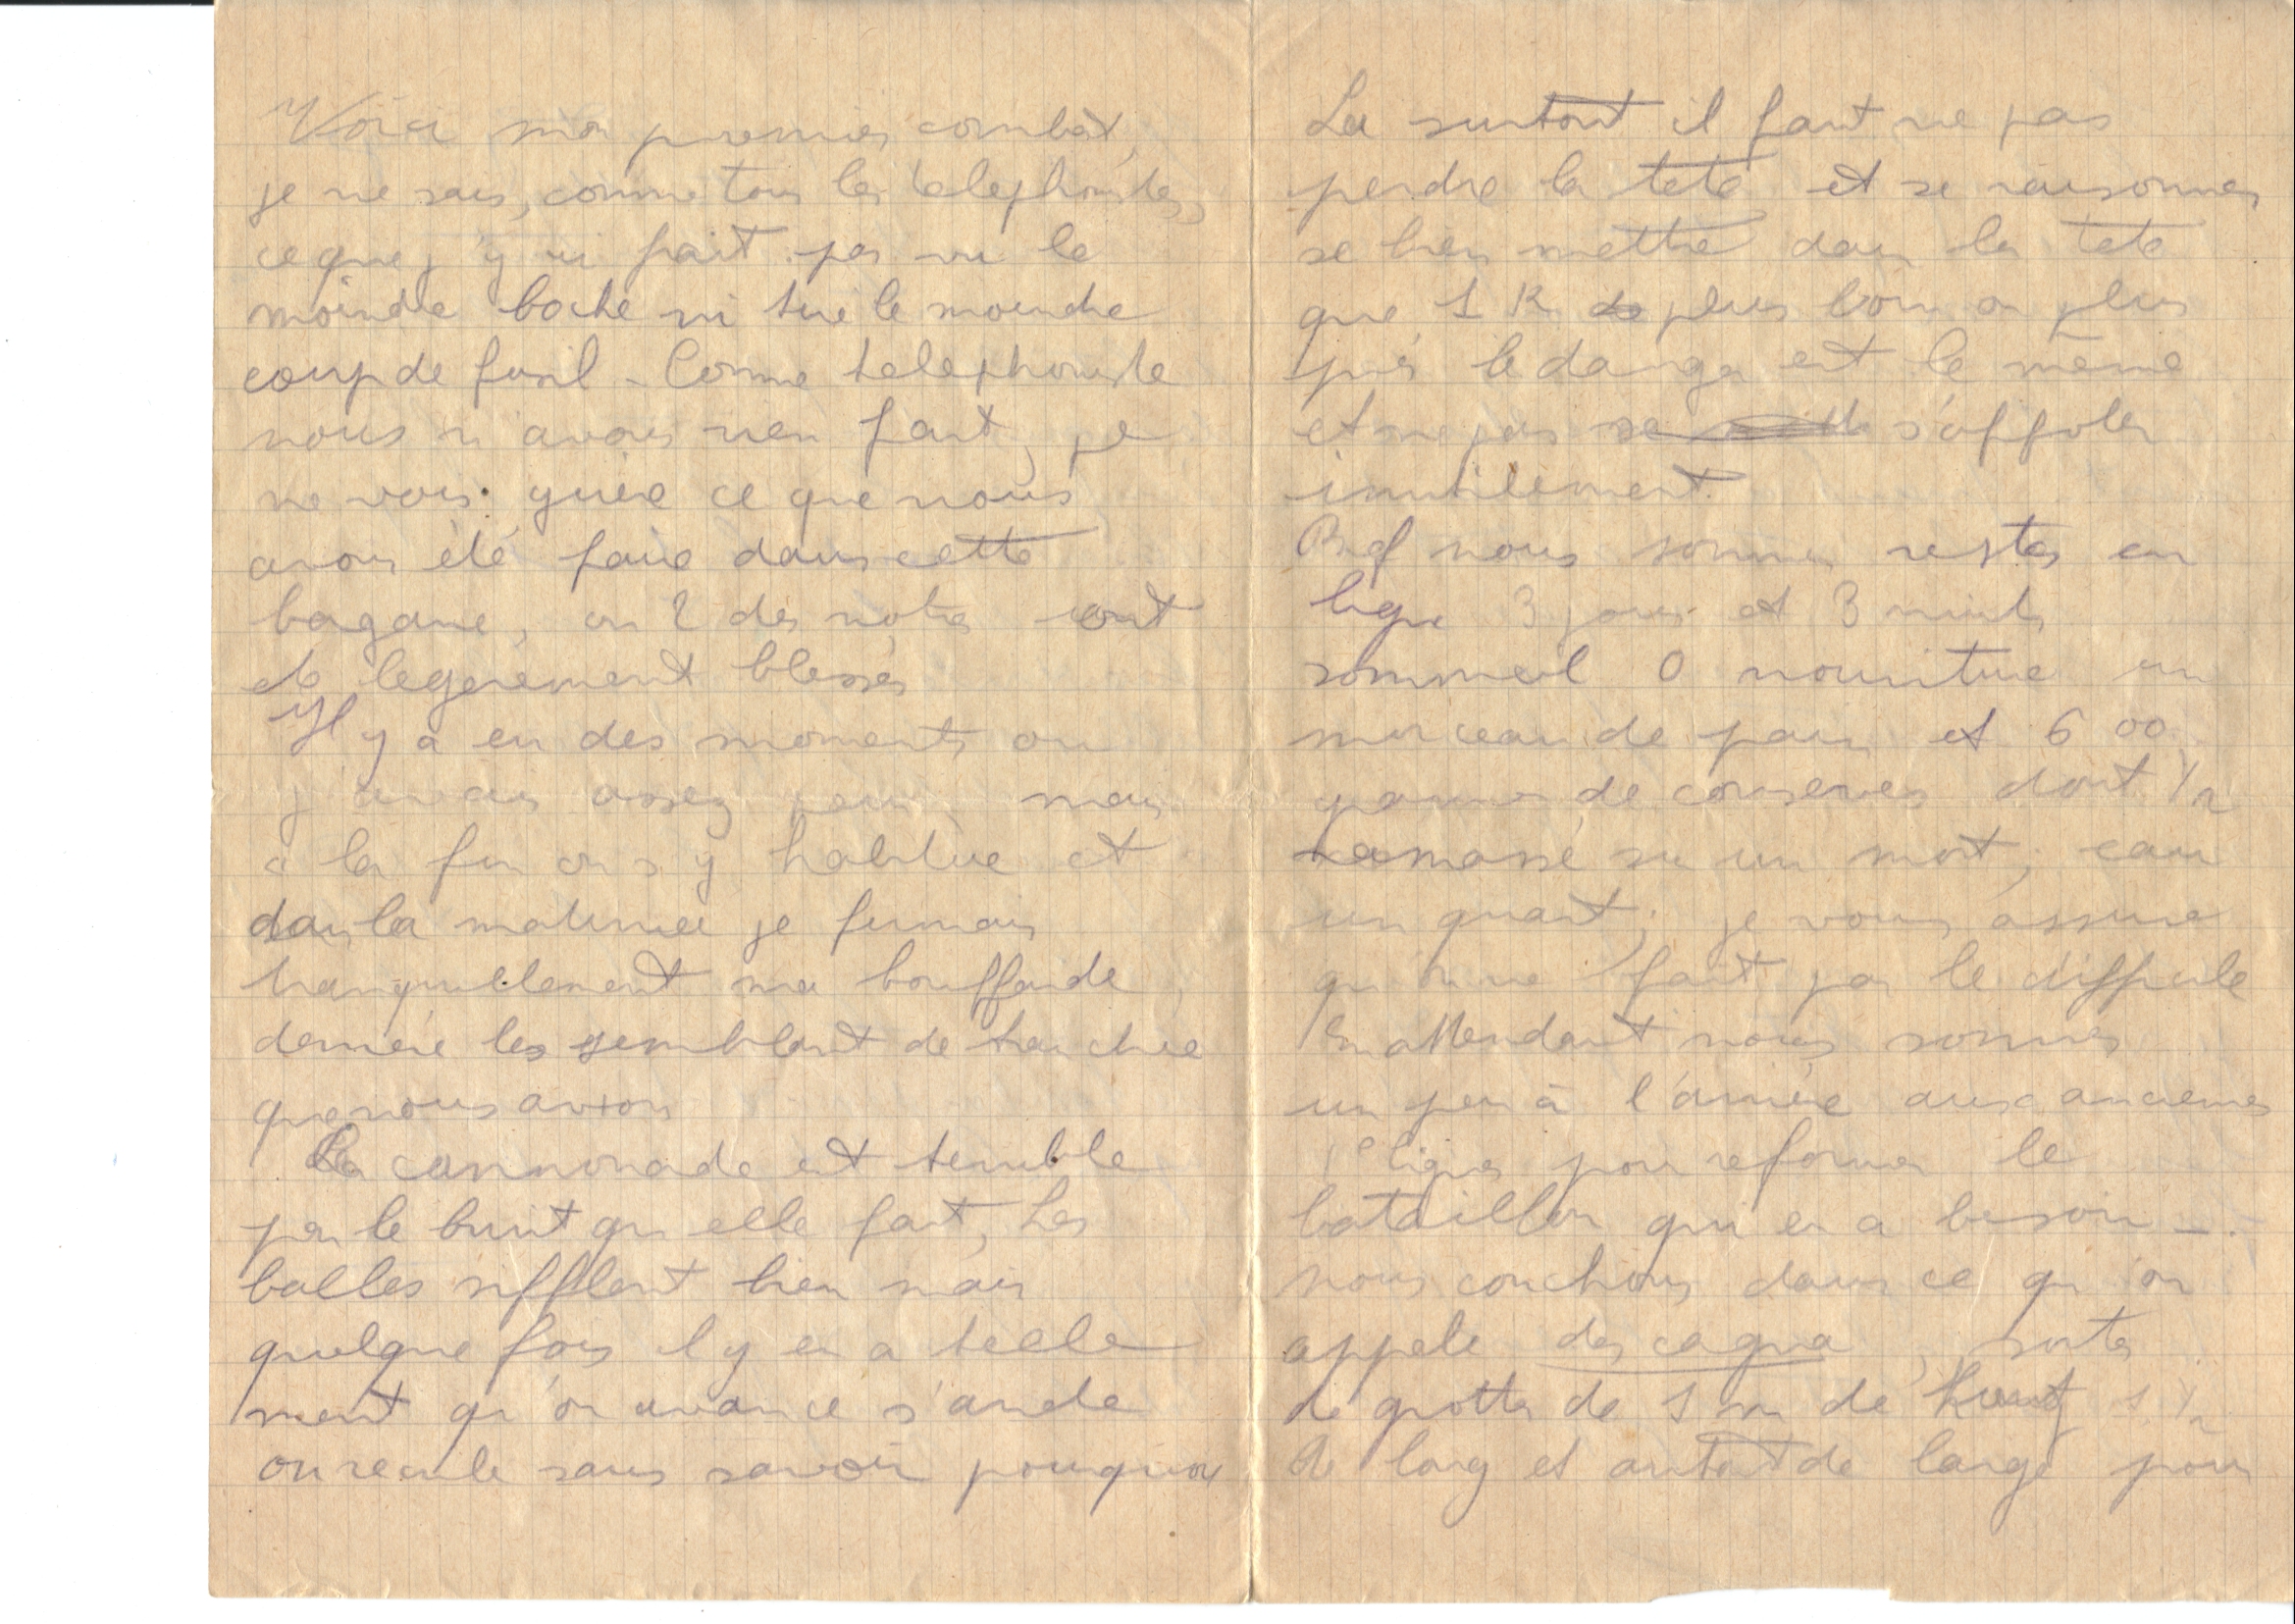 Voici mon premier combat,
je ne sais, comme tous les telephonistes,
ce que j'y ai fait. pas vu le
moindre boche ni tiré le moindre
coup de fusil - Comme telephoniste
nous n avons rien fait, je
ne vois guère ce que nous
avons été faire dans cette
bagarre, ou 2 des notres ont
ete legerement blessés
Il y a eu des moments ou
j'avais assez peur, mais
a la fin on s y habitue et
dans la matinée je fumais
tranquillement ma bouffarde,
derriere les semblant de tranchée
que nous avion
La cannonade est terrible
par le bruit qu elle fait, Les
balles sifflent bien mais
quelque fois il y en a telle
ment qu'on avance s'arrete
on recule sans savoir pourquoi
La surtout il faut ne pas
perdre la tete et se raisonner
se bien mettre dans la tete
que 1 K plus loin ou plus
près le danger est le meme
et ne pas se s'affoler
inutilement.
Bref nous sommes restés en
ligne 3 jours et 3 nuits
sommeil 0 nourriture un
morceau de pain et 600
grammes de conserves dont 1/2
ramassé sur un mort, eau
un quart; je vous assure
qu'on ne fait pas le difficile
En attendant nous sommes
un peu à l'arrière aux anciennes
1e lignes pour reformer le
bataillon qui en a besoin -.
nous couchons dans ce qu'on
appele des cagna, sortes
de grottes de 1 m de haut 1 1/2
de long et autant de large pour